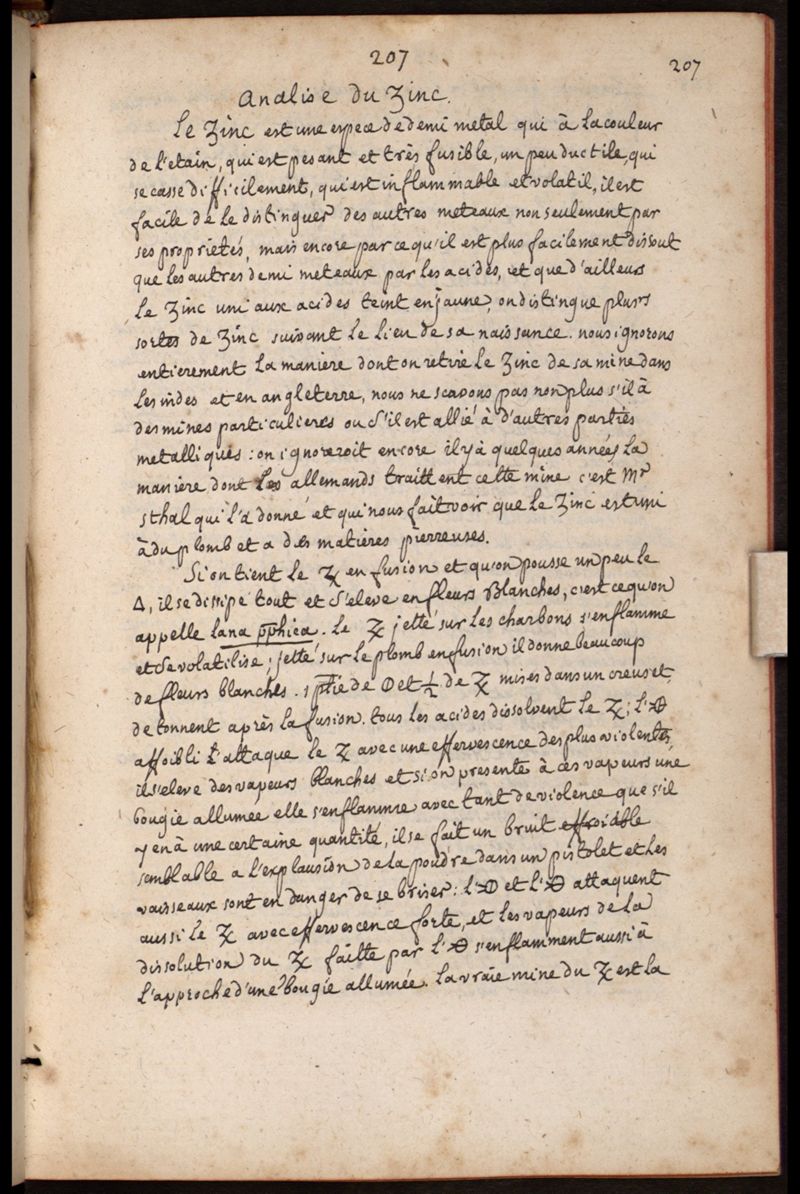 207
207
Analise du Zinc.
Le Zinc est une espece de demi metal qui à la couleur
de l'etain, qui est pesant et très fusible, un peu ductile, qui
se casse difficilement, qui est inflammable et volatil, il est
facile de le distinguer des autres meteaux non seulement par
ses proprietés, mais encore par ce qu'il est plus facilement dissout
que les autres demi meteaux par les acides, et que d'ailleurs
Le Zinc uni aux acides teint en jaune, on distingue plusrs
sortes de Zinc suivant le lieu de sa naissance. nous ignorons
entierement la maniere dont on retire le Zinc de sa mine dans
les indes et en angleterre, nous ne scavons pas non plus s'il à
des mines particulieres ou s'il est allié à d'autres parties
metalliques : on ignoreroit encore il y à quelques années la
maniere dont les allemands traittent cette mine c'est Mr
sthal qui l'a donné et qui nous fait voir que le Zinc est uni
à du plomb et a des matières pierreuses.
Si on tient le Z en fusion et qu'on pousse un peu le
△, il se dissipe tout et s'eleve en fleurs Blanches, c'est ce qu'on
appelle lana pphica. Le Z jetté sur les charbons s'enflamme
et se volatilise ; jetté sur le plomb en fusion il donne beaucoup
de fleurs blanches. 1 ptie de et 1/2 de Z mises dans un creuset
detonnent après la fusion. tous les acides dissolvent le Z ; l'
affoibli l'attaque le Z avec une effervescence des plus violentes,
il s'eleve des vapeurs blanches et si on presente à ces vapeurs une
bougie allumee elle s'enflamme avec tant de violence que s'il
y en à une certaine quantité, il se fait un bruit effroiable
semblable a l'explausion de la poudre dans un pistolet et les
vaisseaux sont en danger de se briser : l' et l' attaquent
aussi le Z avec effervescence forte, et les vapeurs de la
dissolution du Z faitte par l' s'enflamment aussi à
l'approche d'une bougie allumée. la vraie mine du Z est la